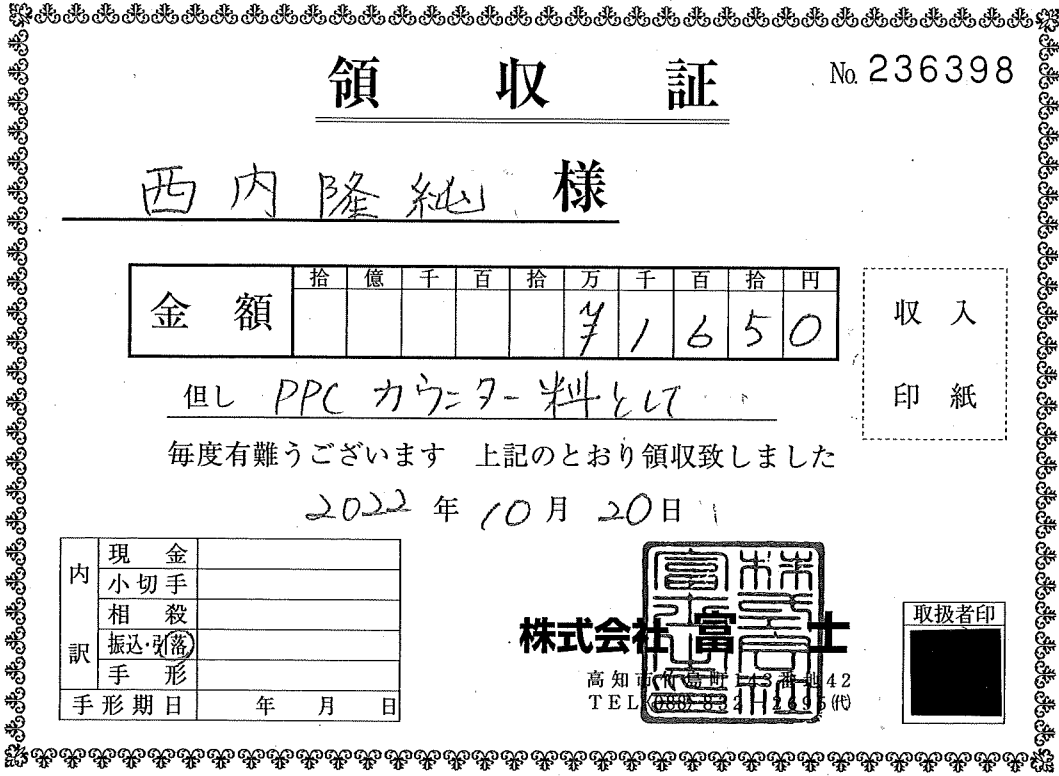 領収証
No. 236398
西内隆純 様
金額
拾 億 千 百 拾 万 千 百 拾 円
¥ 1 6 5 0
但し PPCカウンター料として
毎度有難うございます 上記のとおり領収致しました
2022年10月20日
収入
印紙
内訳
現金
小切手
相殺
振込・引落
手形
手形期日 年 月 日
株式会社 富士
高知市竹島町143番地42
TEL(088)832-2695㈹
取扱者印